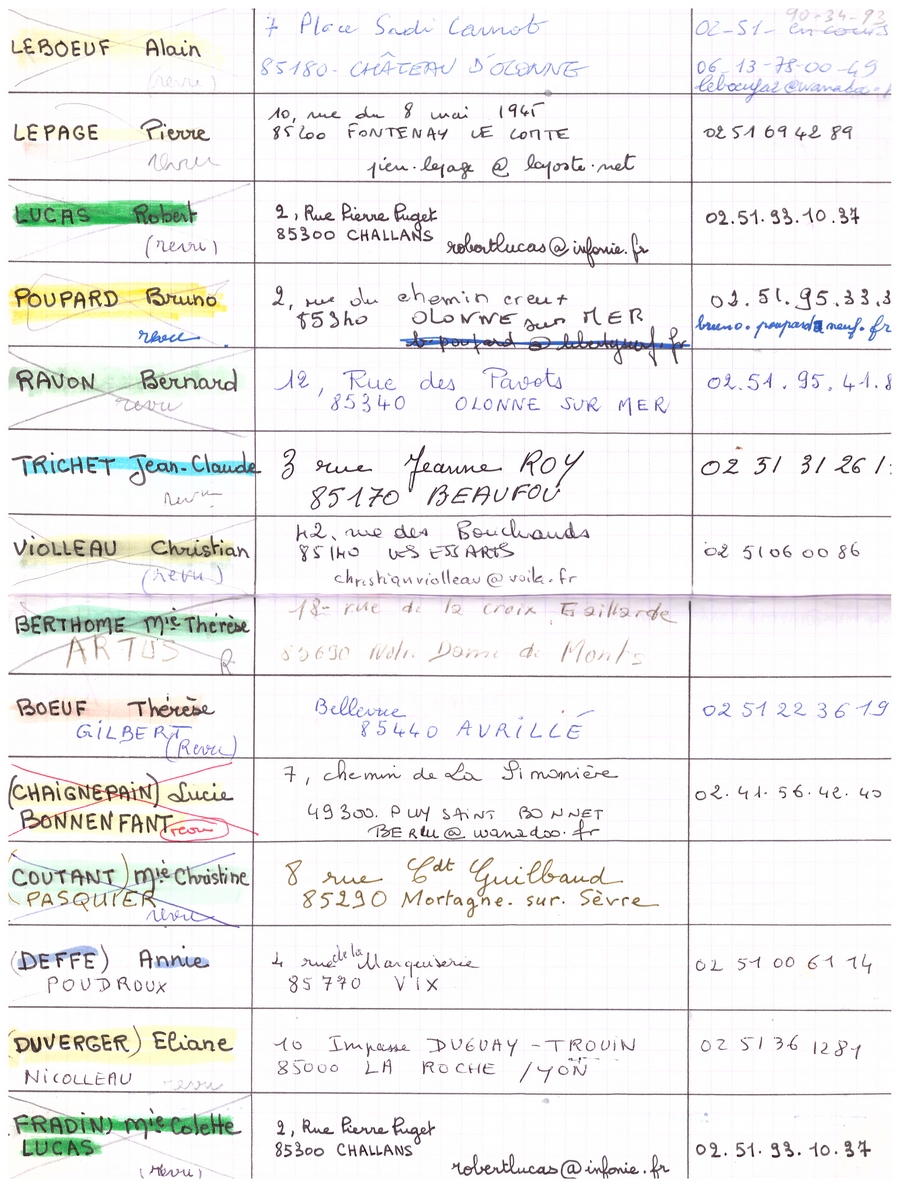 LEBOEUF Alain
(revu)
7 Place Sadi Carnot
85180 - CHÂTEAU D'OLONNE
90-34-93
02-51- en cours
06-13-78-00-49
leboeufa2@wanadoo.f
LEPAGE Pierre
revu
10, rue du 8 mai 1945
85200 FONTENAY LE COMTE
pien.lepage @ laposte.net
02 51 69 42 89
LUCAS Robert
(revu)
2, Rue Pierre Puget
85300 CHALLANS
robertlucas@infonie.fr
02.51.93.10.37
POUPARD Bruno
revu
2, rue du chemin creux
85340 OLONNE sur MER
b-poupard @ libertysurf.fr
02.51.95.33.3
bruno.poupard@neuf.fr
RAVON Bernard
revu
12, Rue des Pavots
85340 OLONNE SUR MER
02.51.95.41.8
TRICHET Jean-Claude
revu
3 rue Jeanne ROY
85170 BEAUFOU
02 51 31 26 1
VIOLLEAU Christian
(revu)
42, rue des Bouchauds
85140 LES ESSARTS
christianviolleau@voila.fr
02 51 06 00 86
BERTHOME Mie Thérèse
ARTUS R
18- rue de la croix Gaillarde
85690 Notre Dame de Monts
BOEUF Thérèse
GILBERT
(Revu)
Bellevue
85440 AVRILLÉ
02 51 22 36 19
(CHAIGNEPAIN) Lucie
BONNENFANT revu
7, chemin de La Simonière
49300. PUY SAINT BONNET
BERLU@wanadoo.fr
02.41.56.42.40
COUTANT) Mie Christine
PASQUIER
revu
8 rue Cdt Guilbaud
85290 Mortagne.sur.Sèvre
(DEFFE) Annie
POUDROUX
4 rue de la Marquiserie
85770 VIX
02 51 00 61 14
(DUVERGER) Eliane
NICOLLEAU revu
10 Impasse DUGUAY-TROUIN
85000 LA ROCHE /YON
02 51 36 12 81
FRADIN) Mie Colette
LUCAS
(revu)
2, Rue Pierre Puget
85300 CHALLANS
robertlucas@infonie.fr
02.51.93.10.37